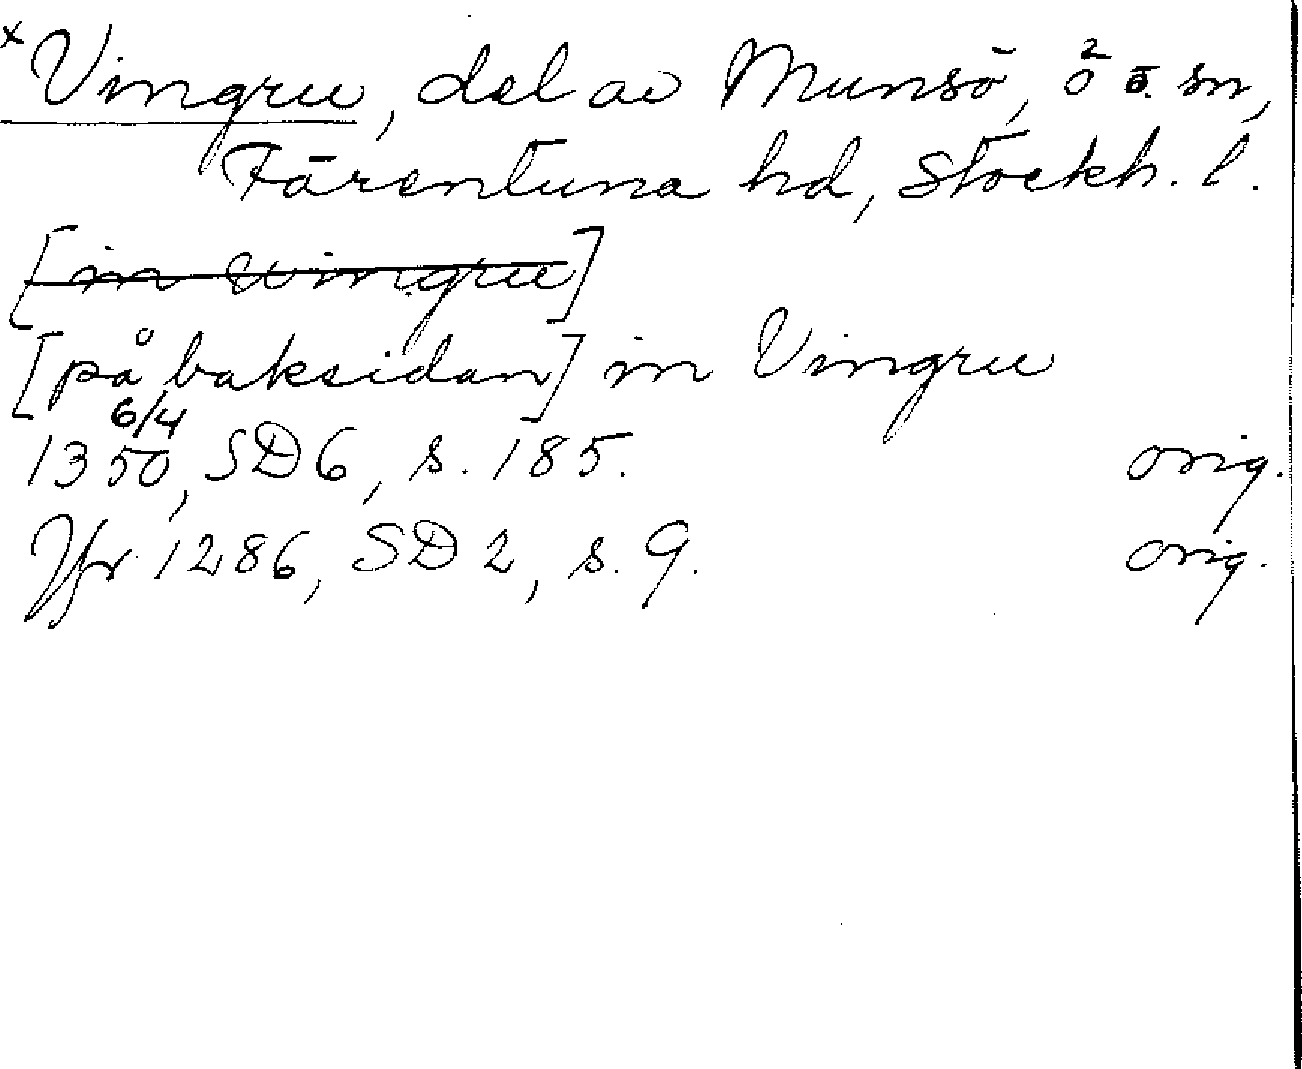 x Vingru, del av Munsö, ö o. sn,
Färentuna hd, Stockh. l.
[in wingru]
[på baksidan] in Vingru
1350 6/4, SD 6, s. 185. orig.
Jfr 1286, SD 2, s. 9. orig.